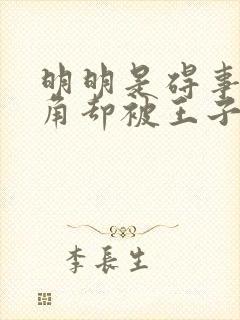 明明是碍事
角却被王子
李長生